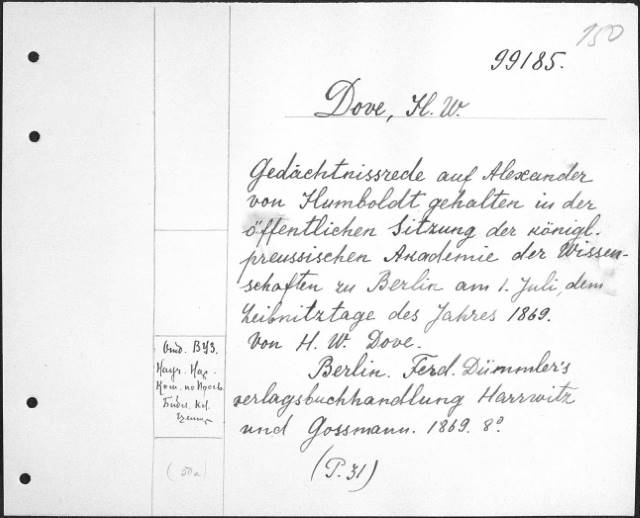 150
99185.
Dove, H. W.
Gedächtnissrede auf Alexander
von Humboldt gehalten in der
öffentlichen Sitzung der königl.
preussischen Akademie der Wissen-
schaften zu Berlin am 1. Juli, dem
Leibnitztage des Jahres 1869.
Von H. W. Dove.
Berlin. Ferd. Dümmler's
verlagsbuchhandlung Harrwitz
und Gossmann. 1869. 8º
(P. 31)
ВУЗ.
Науч.
Ком. по
Библ. Кн.
(50a)